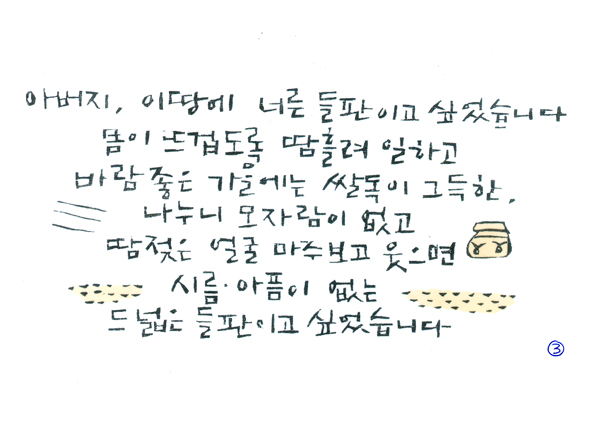 아버지, 이땅에 너른 들판이고 싶었습니다
몸이 뜨겁도록 땀흘려 일하고
바람좋은 가을에는 쌀독이 그득한,
나누니 모자람이 없고
땀젖은 얼굴 마주보고 웃으면
시름·아픔이 없는
드넓은 들판이고 싶었습니다
③